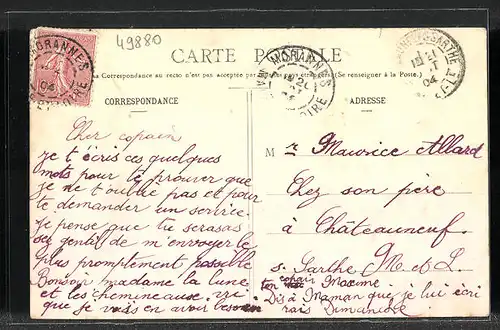 49880
CARTE POSTALE
La Correspondance au recto n'est pas acceptée par tous les pays étrangers (Se renseigner à la Poste.)
MORANNES
MORANNES
21
04
SARTHE
21
04
CORRESPONDANCE
ADRESSE
Cher copain
je t'écris ces quelques
mots pour te prouver que
je ne t'oublie pas et pour
te demander un service.
je pense que tu serasas
gentil de m'envoyer le
plus promptement possible
Bonsoir madame la lune
et les chemineaux
que je vais en avoir besoin
Mr Maurice Allard
Chez son père
à Châteauneuf
s. Sarthe M. et L.
ton copain Maxime
Dis à Maman que je lui écri
rais Dimanche